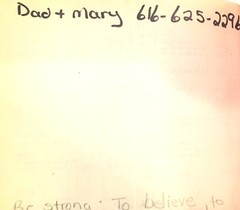 Dad + mary 616-625-2296
Be strong. To believe, to